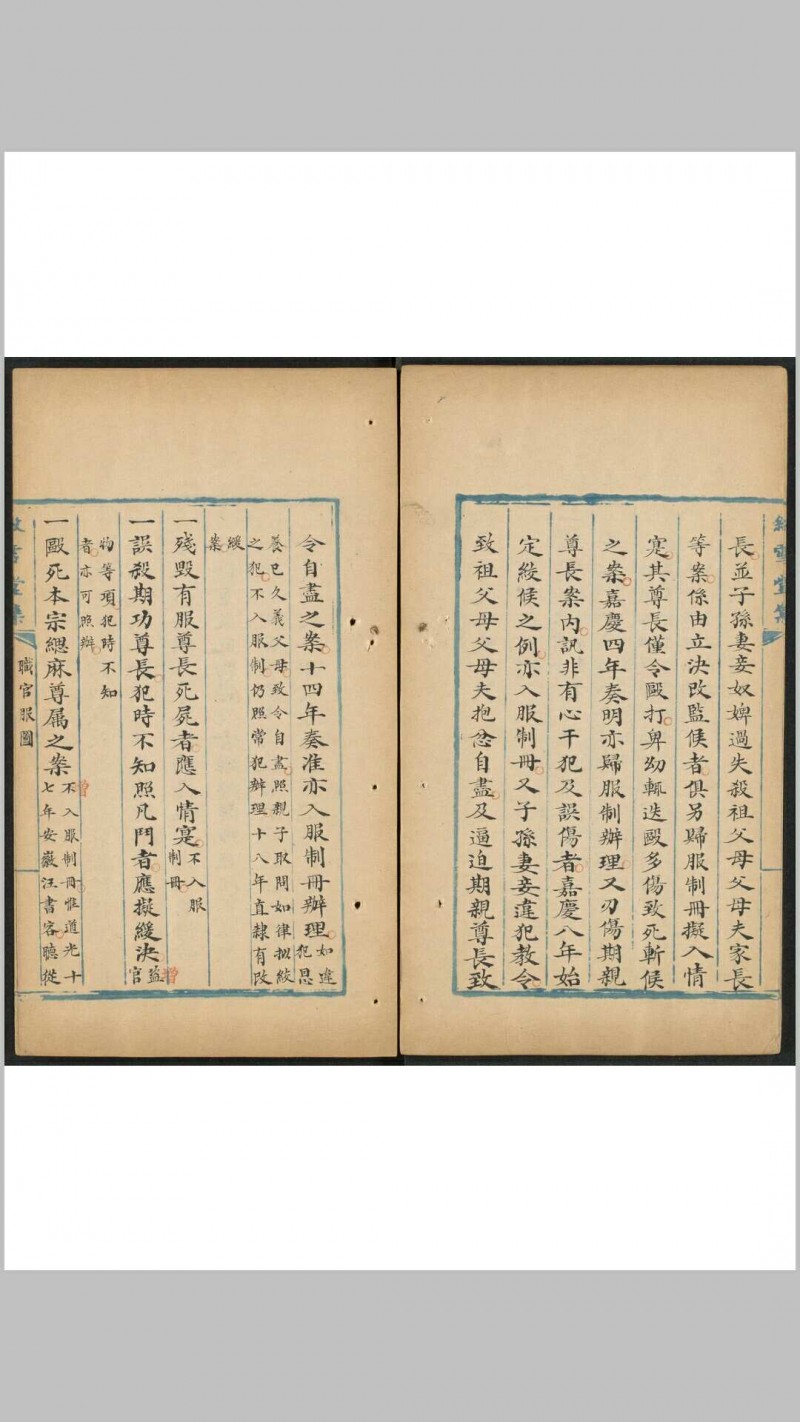 長並子孫妻妾奴婢過失殺祖父母父母夫家長
等案係由立決改監候者俱另歸服制冊擬入情
寔其尊長僅令毆打卑幼輒迭毆多傷致死斬候
之案嘉慶四年奏明亦歸服制辦理又刃傷期親
尊長案內訊非有心干犯及誤傷者嘉慶八年始
定絞候之例亦入服制冊又子孫妻妾違犯教令
致祖父母父母夫抱忿自盡及逼迫期親尊長致
令自盡之案十四年奏准亦入服制冊辦理如違
犯恩
養已久義父母致令自盡照親子取問如律擬絞
之犯不入服制仍照常犯辦理十八年直隸有改
緩
案
一殘毀有服尊長死屍者應入情寔不入服
制冊
一誤殺期功尊長犯時不知照凡鬥者應擬緩決盜
官
物等項犯時不知
者亦可照辦
一毆死本宗緦麻尊属之案不入服制冊惟道光十
七年安徽汪書客聽從
職官服圖